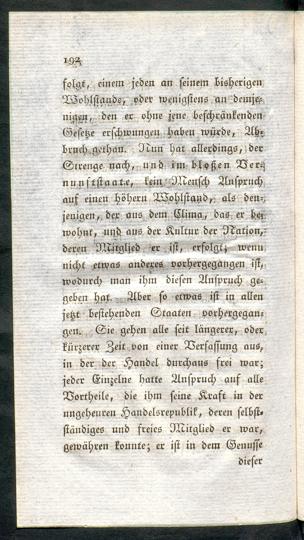 192
folgt, einem jeden an seinem bisherigen
Wohlstande, oder wenigstens an demje-
nigen, den er ohne jene beschränkenden
Gesetze erschwungen haben würde, Ab-
bruch gethan. Nun hat allerdings, der
Strenge nach, und im bloßen Ver-
nunftstaate, kein Mensch Anspruch
auf einen höhern Wohlstand, als den-
jenigen, der aus dem Clima, das er be-
wohnt, und aus der Kultur der Nation,
deren Mitglied er ist, erfolgt; wenn
nicht etwas anderes vorhergegangen ist,
wodurch man ihm diesen Anspruch ge-
geben hat. Aber so etwas ist in allen
jetzt bestehenden Staaten vorhergegan-
gen. Sie gehen alle seit längerer, oder
kürzerer Zeit von einer Verfassung aus,
in der der Handel durchaus frei war;
jeder Einzelne hatte Anspruch auf alle
Vortheile, die ihm seine Kraft in der
ungeheuren Handelsrepublik, deren selbst-
ständiges und freies Mitglied er war,
gewähren konnte; er ist in dem Genusse
dieser